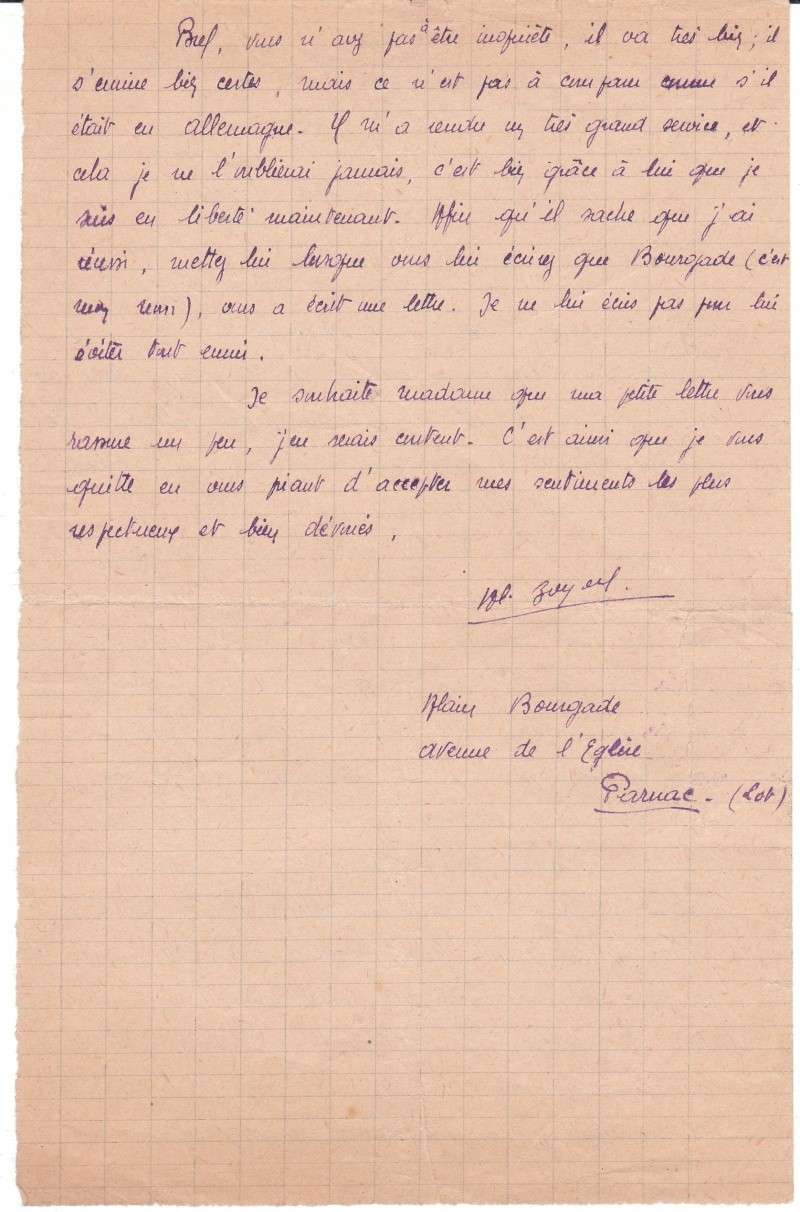 Bref, vous n'avez pas à être inquiète, il va très bien ; il
s'ennuie bien certes, mais ce n'est pas à comparer comme s'il
était en allemagne. Il m'a rendu un très grand service, et
cela je ne l'oublierai jamais, c'est bien grâce à lui que je
suis en liberté maintenant. Afin qu'il sache que j'ai
réussi, mettez lui lorsque vous lui écrirez que Bourgade (c'est
moi), vous a écrit une lettre. Je ne lui écris pas pour lui
éviter tout ennui.
Je souhaite madame que ma petite lettre vous
rassure un peu, j'en serais content. C'est ainsi que je vous
quitte en vous priant d'accepter mes sentiments les plus
respectueux et bien dévoués,
Alain Bourgade
avenue de l'Eglise
Parnac - (Lot)